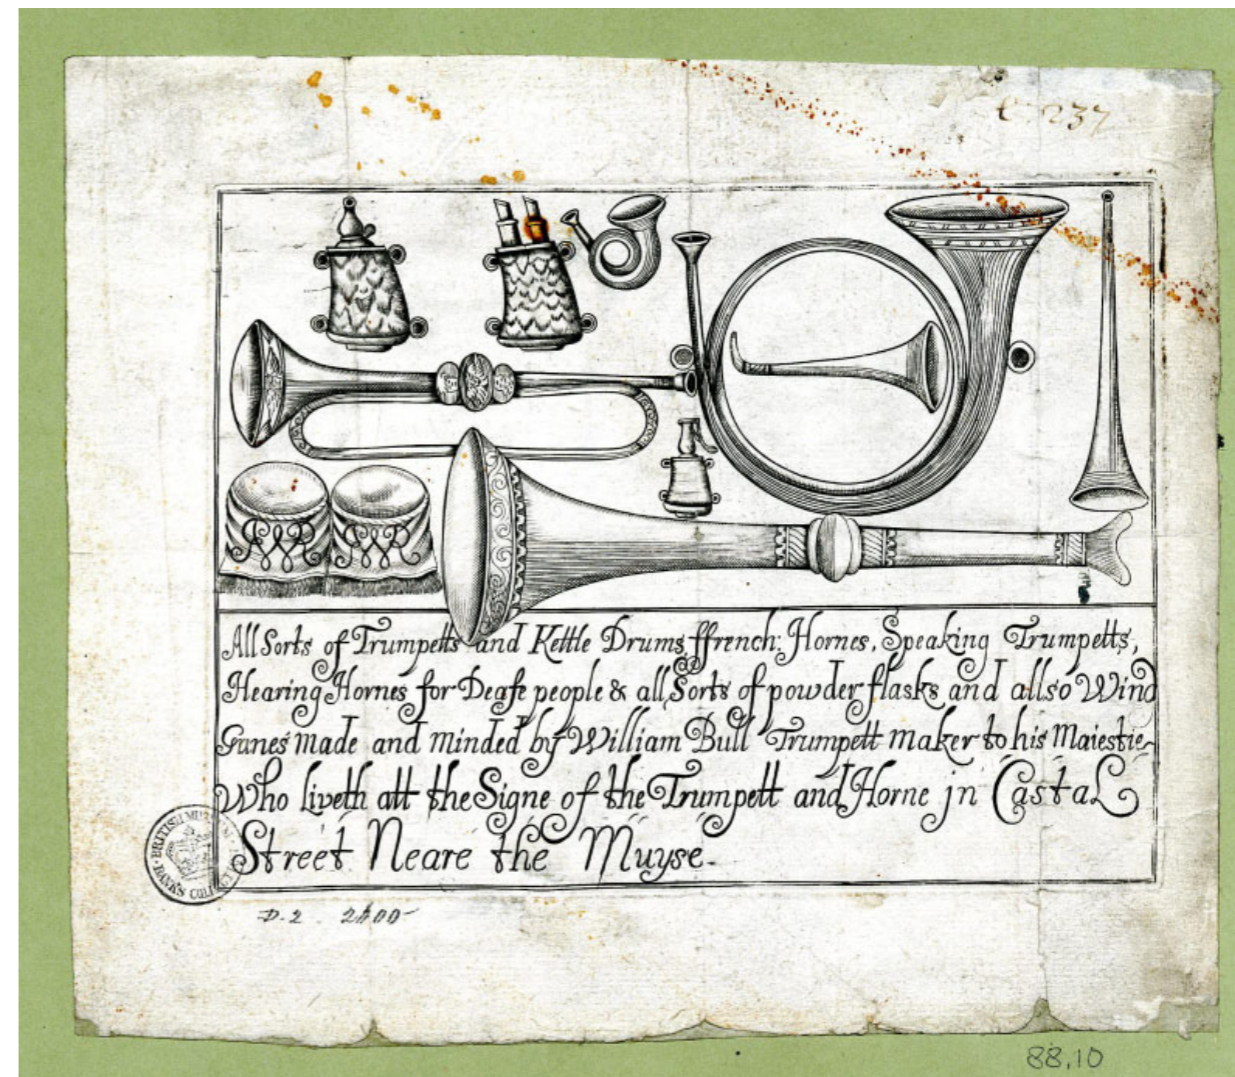 C. 237
All Sorts of Trumpetts and Kettle Drums, ffrench: Hornes, Speaking Trumpetts,
Hearing Hornes for Deafe people & all Sorts of powder flasks and allso Wind
Gunes made and minded by William Bull Trumpett maker to his Maiestie
Who liveth att the Signe of the Trumpett and Horne jn Castal
Street Neare the Muyse.
BRITISH MUSEUM
BANKS COLLECTION
D. 2 - 2600
88,10